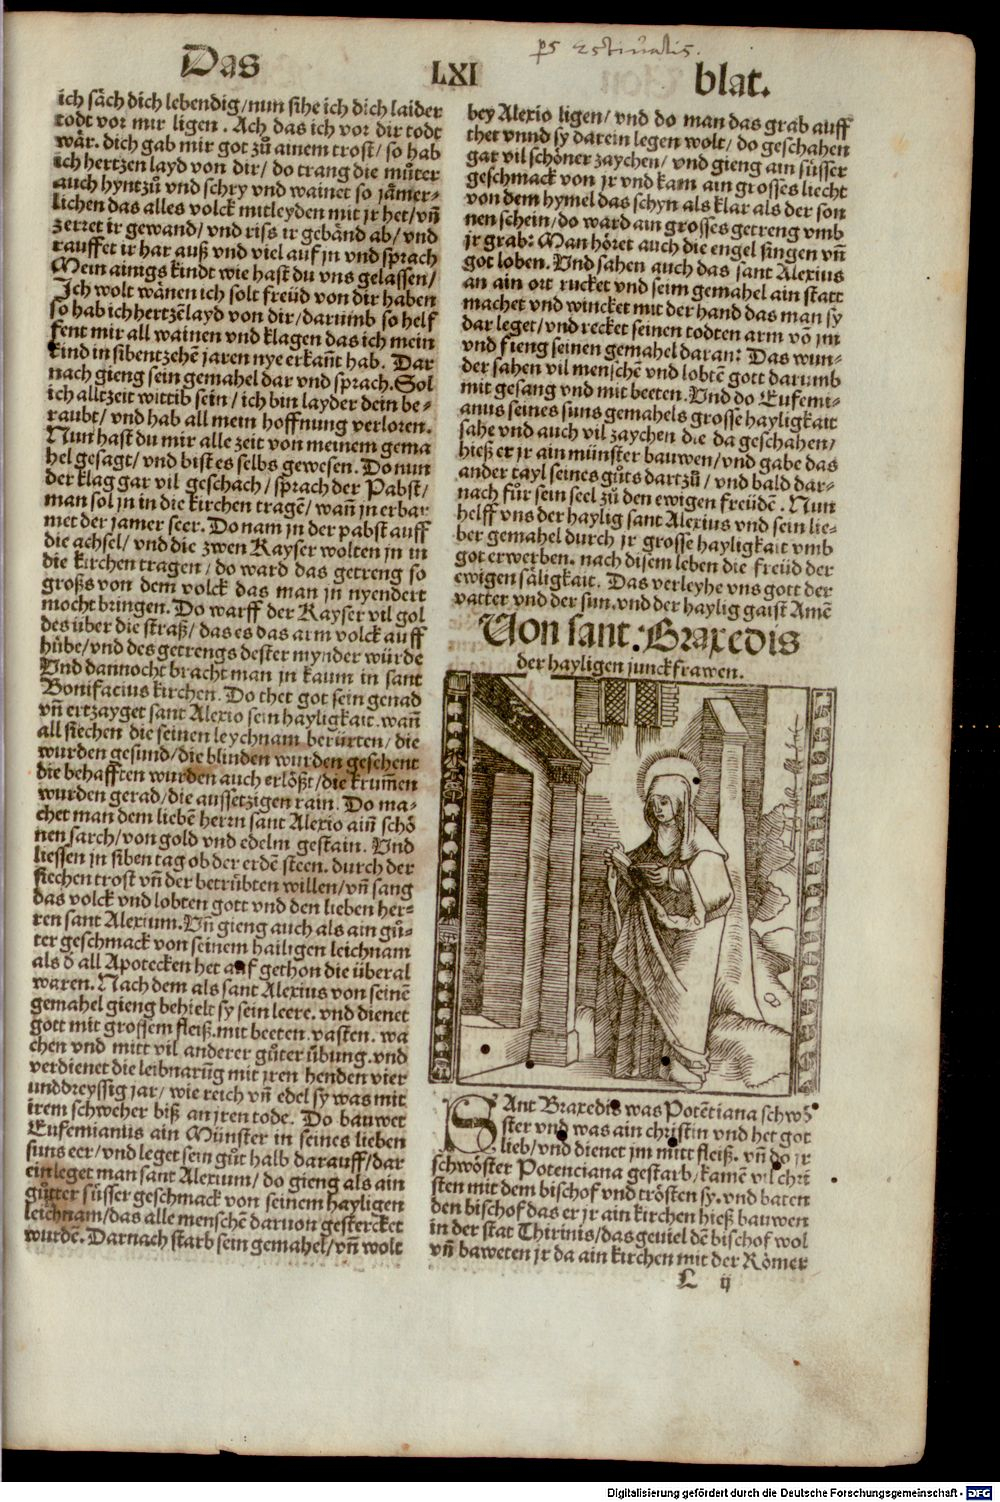 ps Estiualis.
Das LXI blat.
ich säch dich lebendig/nun sihe ich dich laider
todt vor mir ligen. Ach das ich vor dir todt
wär. dich gab mir got zů ainem trost/ so hab
ich hertzen layd von dir/ do trang die můter
auch hyntzů vnd schry vnd wainet so jämer-
lichen das alles volck mitleyden mit jr het/vñ
zerret ir gewand/vnd riss ir gebänd ab/vnd
rauffet ir har auß vnd viel auf jn vnd sprach
Mein ainigs kindt wie hast du vns gelassen/
Ich wolt wänen ich solt freüd von dir haben
so hab ich hertzēlayd von dir/darumb so helf
fent mir all wainen vnd klagen das ich mein
kind in sibentzehē jaren nye erkañt hab. Dar
nach gieng sein gemahel dar vnd sprach. Sol
ich alltzeit wittib sein/ ich bin layder dein be-
raubt/vnd hab all mein hoffnung verloren.
Nun hast du mir alle zeit von meinem gema
hel gesagt/vnd bist es selbs gewesen. Do nun
der klag gar vil geschach/sprach der Pabst/
man sol jn in die kirchen tragē/wañ jn erbar
met der jamer seer. Do nam jn der pabst auff
die achsel/vnd die zwen Kayser wolten jn in
die kirchen tragen/do ward das getreng so
groß von dem volck das man jn nyendert
mocht bringen. Do warff der Kayser vil gol
des über die straß/das es das arm volck auff
hübe/vnd des getrengs dester mynder würde
Vnd dannocht bracht man jn kaum in sant
Bonifacius kirchen. Do thet got sein genad
vñ ertzayget sant Alexio sein hayligkait. wañ
all siechen die seinen leychnam berürten/die
wurden gesund/die blinden wurden gesehent
die behafften wurden auch erlößt/die krum̄en
wurden gerad/die aussetzigen rain. Do ma-
chet man dem liebē herrn sant Alexio ain schö
nen sarch/von gold vnd edelm gestain. Vnd
liessen jn siben tag ob der erdē steen. durch der
siechen trost vñ der betrübten willen/vñ sang
das volck vnd lobten gott vnd den lieben her-
ren sant Alexium. Vñ gieng auch als ain gů-
ter geschmack von seinem hailigen leichnam
als ð all Apotecken het auf gethon die überal
waren. Nach dem als sant Alexius von seinē
gemahel gieng behielt sy sein leere. vnd dienet
gott mit grossem fleiß. mit beeten. vasten. wa
chen vnd mitt vil anderer gůter übung. vnd
verdienet die leibnarūg mit jren henden vier
unddreyssig jar/ wie reich vñ edel sy was mit
irem schweher biß an jren tode. Do bauwet
Eufemianus ain Münster in seines lieben
suns eer/vnd leget sein gůt halb darauff/dar
ein leget man sant Alexium/do gieng als ain
gůtter süsser geschmack von seinem hayligen
leichnam/das alle menschē daruon gestercket
wurdē. Darnach starb sein gemahel/vñ wolt
bey Alexio ligen/vnd do man das grab auff
thet vnnd sy darein legen wolt/do geschahen
gar vil schöner zaychen/vnd gieng ain süsser
geschmack von jr vnd kam ain grosses liecht
von dem hymel das schyn als klar als der son
nen schein/do ward ain grosses getreng vmb
jr grab: Man höret auch die engel singen vñ
got loben. Vnd sahen auch das sant Alexius
an ain ort rucket vnd seim gemahel ain statt
machet vnd wincket mit der hand das man sy
dar leget/vnd recket seinen todten arm vō jm
vnd fieng seinen gemahel daran: Das wun-
der sahen vil menschē vnd lobtē gott darumb
mit gesang vnd mit beeten. Vnd do Eufemi-
anus seines suns gemahels grosse hayligkait
sahe vnd auch vil zaychen die da geschahen/
hieß er jr ain münster bauwen/vnd gabe das
ander tayl seines gůts dartzů/vnd bald dar-
nach fůr sein seel zů den ewigen freüdē. Nun
helff vns der haylig sant Alexius vnd sein lie-
ber gemahel durch jr grosse hayligkait vmb
got erwerben. nach disem leben die freüd der
ewigen säligkait. Das verleyhe vns gott der
vatter vnd der sun. vnd der haylig gaist Amē
Von sant. Braxedis
der hayligen junckfrawen.
SAnt Braxedis was Potētiana schwö
ster vnd was ain christin vnd het got
lieb/vnd dienet jm mitt fleiß. vñ do jr
schwöster Potenciana gestarb/kamē vil chri
sten mit dem bischof vnd trösten sy. vnd baten
den bischof das er jr ain kirchen hieß bauwen
in der stat Thirinis/das geuiel dē bischof wol
vñ baweten jr da ain kirchen mit der Römer
L ij
Digitalisierung gefördert durch die Deutsche Forschungsgemeinschaft - DFG